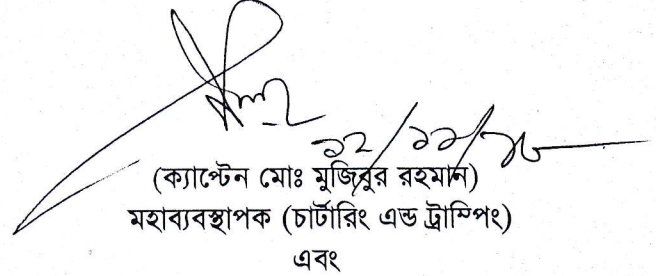 ১২/১১/১৮
(ক্যাপ্টেন মোঃ মুজিবুর রহমান)
মহাব্যবস্থাপক (চার্টারিং এন্ড ট্রাম্পিং)
এবং